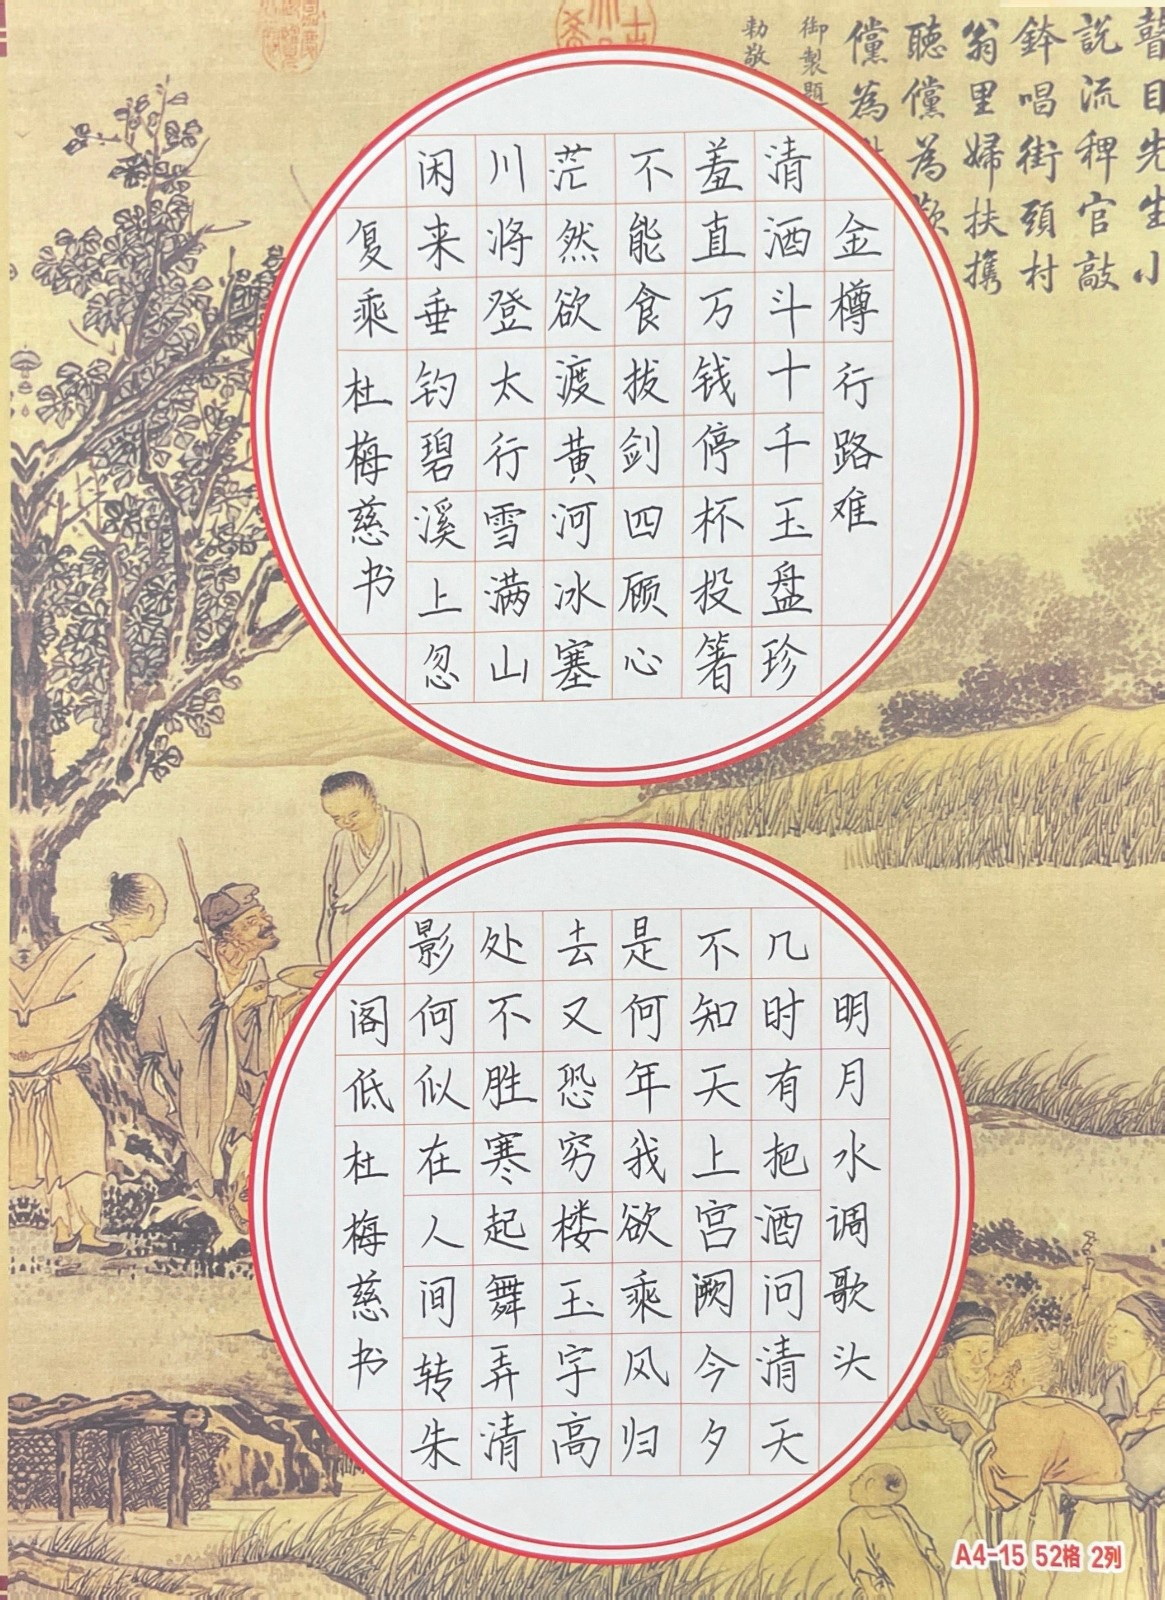 瞽目先生小
說流稗官敲
鉢唱街頭村
翁里婦扶攜
聽儻為
儻為
御製題
勅敬
金樽 行路难
清洒斗十千玉盘珍
羞直万钱停杯投箸
不能食拔剑四顾心
茫然欲渡黄河冰塞
川将登太行雪满山
闲来垂钓碧溪上忽
复乘 杜梅慈书
明月 水调歌头
几时有把酒问清天
不知天上宫阙今夕
是何年我欲乘风归
去又恐穷楼玉宇高
处不胜寒起舞弄清
影何似在人间转朱
阁低 杜梅慈书
A4-15 52格 2列